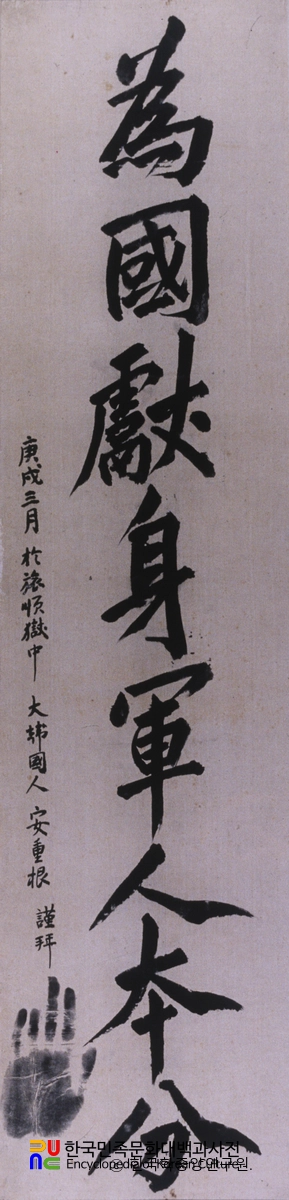 為國獻身軍人本分
庚戌三月 於旅順獄中 大韓國人 安重根 謹拜
한국민족문화대백과사전
Encyclopedia of Korean Culture